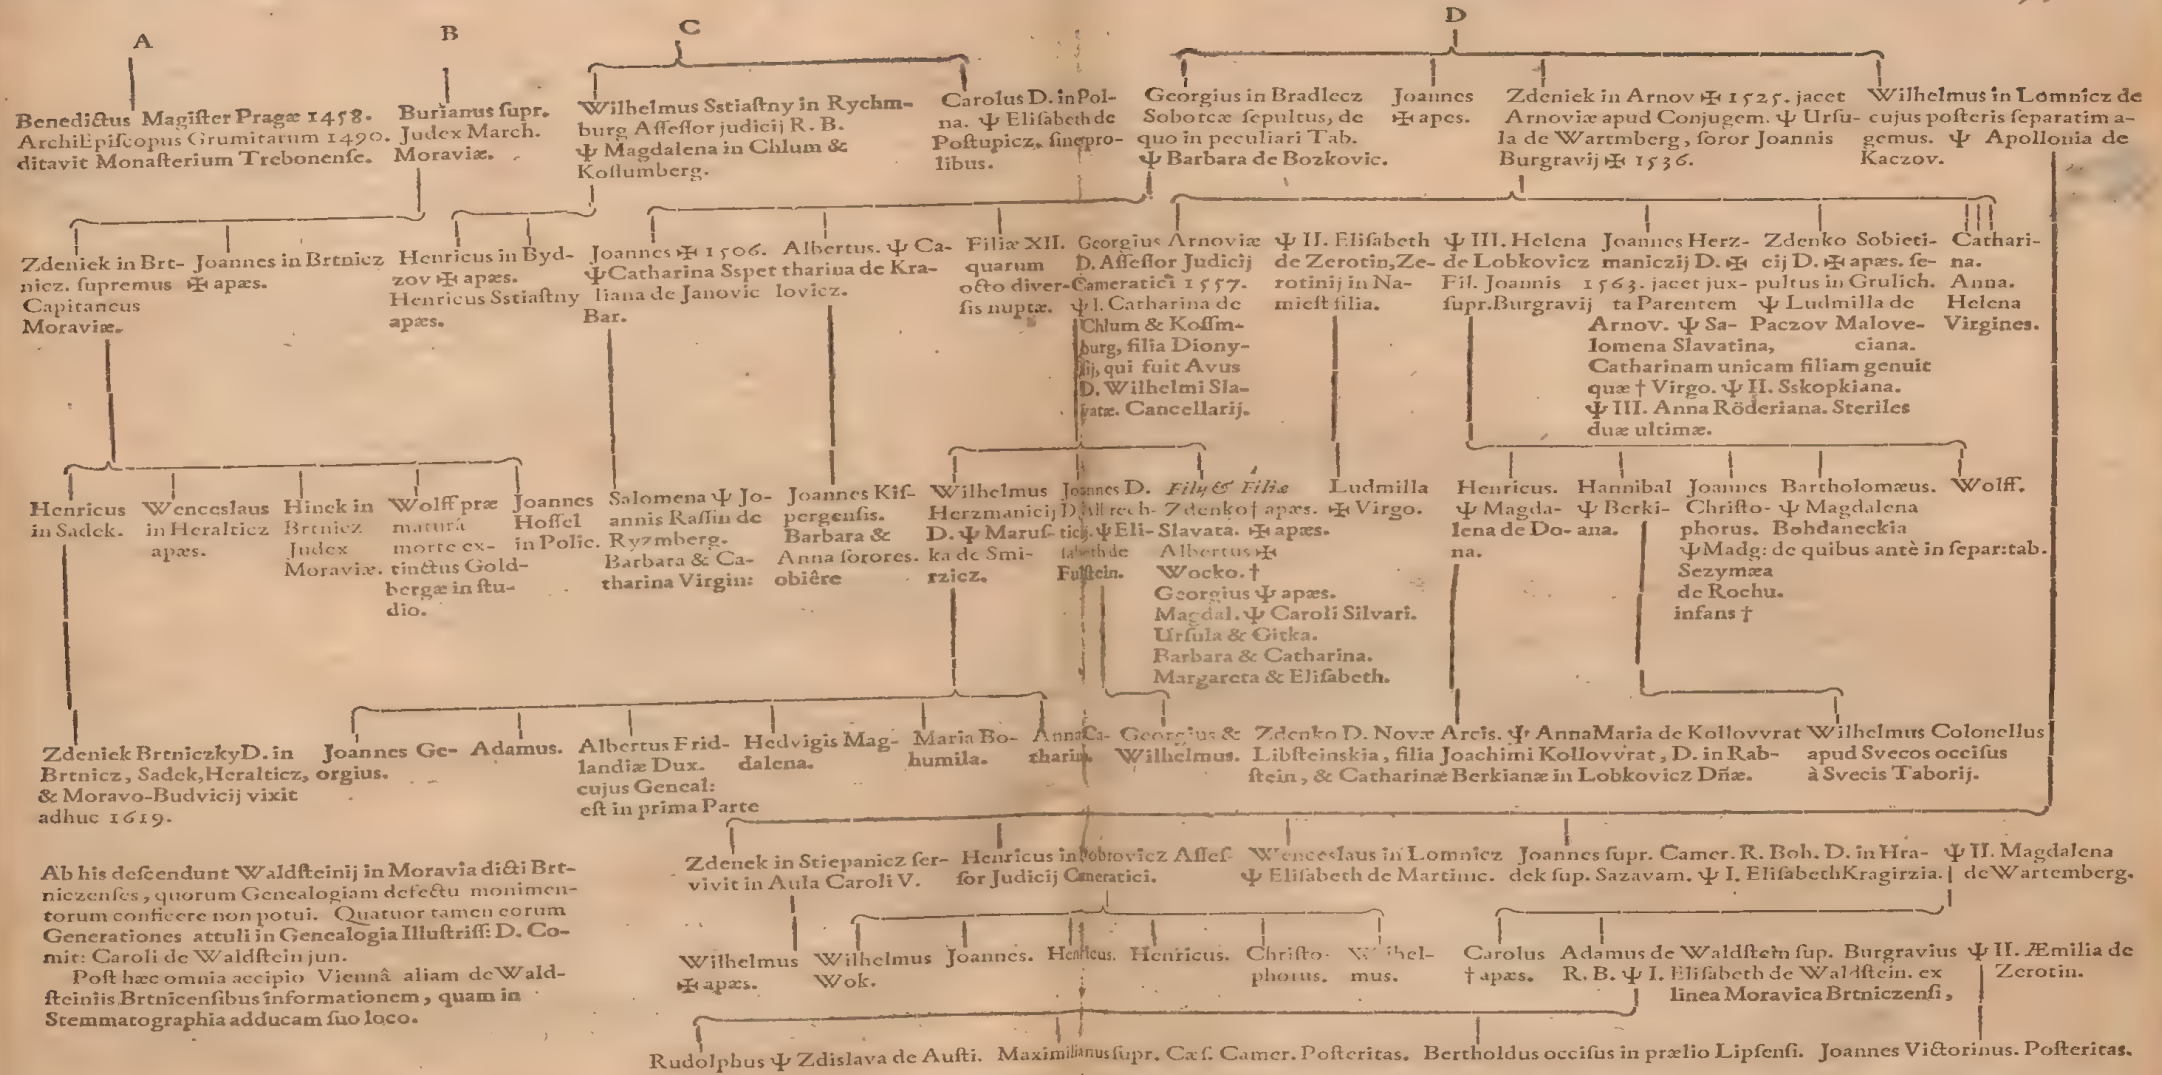 A
B
C
D
Benedictus Magiſter Pragæ 1458.
ArchiEpiſcopus Grumitarum 1490.
ditavit Monaſterium Trebonenſe.
Burianus ſupr.
Judex March.
Moraviæ.
Wilhelmus Sstiaſtny in Rychm-
burg Aſſeſſor judicij R. B.
Ψ Magdalena in Chlum &
Koſſumberg.
Carolus D. in Pol-
na. Ψ Eliſabeth de
Poſtupicz, ſine pro-
libus.
Georgius in Bradlecz
Sobotcæ ſepultus, de
quo in peculiari Tab.
Ψ Barbara de Bozkovic.
Joannes
✠ apes.
Zdeniek in Arnov ✠ 1525. jacet
Arnoviæ apud Conjugem. Ψ Urſu-
la de Wartmberg, ſoror Joannis
Burgravij ✠ 1536.
Wilhelmus in Lomnicz de
cujus poſteris ſeparatim a-
gemus. Ψ Apollonia de
Kaczov.
Zdeniek in Brt-
nicz. ſupremus
Capitaneus
Moraviæ.
Joannes in Brtnicz
✠ apæs.
Henricus in Byd-
zov ✠ apæs.
Henricus Sstiaſtny
apæs.
Joannes ✠ 1506.
Ψ Catharina Sspet
liana de Janovic
Bar.
Albertus. Ψ Ca-
tharina de Kra-
lovicz.
Filiæ XII.
quarum
octo diver-
ſis nuptæ.
Georgius Arnoviæ
D. Aſſeſſor Judicij
Cameratici 1557.
Ψ I. Catharina de
Chlum & Koſſm-
burg, filia Diony-
ſij, qui fuit Avus
D. Wilhelmi Sla-
vatæ. Cancellarij.
Ψ II. Eliſabeth
de Zerotin, Ze-
rotinij in Na-
mieſt filia.
Ψ III. Helena
de Lobkovicz
Fil. Joannis
ſupr. Burgravij
Joannes Herz-
maniczij D. ✠
1563. jacet jux-
ta Parentem
Arnov. Ψ Sa-
lomena Slavatina,
Catharinam unicam filiam genuit
quæ † Virgo. Ψ II. Sskopkiana.
Ψ III. Anna Röderiana. Steriles
duæ ultimæ.
Zdenko Sobieti-
cij D. ✠ apæs. ſe-
pultus in Grulich.
Ψ Ludmilla de
Paczov Malove-
ciana.
Cathari-
na.
Anna.
Helena
Virgines.
Henricus
in Sadek.
Wenceslaus
in Heralticz
apæs.
Hinek in
Brtnicz
Judex
Moraviæ.
Wolff præ
maturâ
morte ex-
tinctus Gold-
bergæ in ſtu-
dio.
Joannes
Hoſſel
in Polic.
Salomena Ψ Jo-
annis Raſſin de
Ryzmberg.
Barbara & Ca-
tharina Virgin:
Joannes Kiſ-
pergenſis.
Barbara &
Anna ſorores.
obiêre
Wilhelmus
Herzmanicij
D. Ψ Maruſ-
ka de Smi-
rzicz.
Joannes D.
Ψ Eli-
ſabeth de
Fulſtein.
Filij & Filiæ
Zdenko † apæs.
Slavata. ✠ apæs.
Albertus ✠
Wocko. †
Georgius Ψ apæs.
Magdal. Ψ Caroli Silvari.
Urſula & Gitka.
Barbara & Catharina.
Margareta & Eliſabeth.
Ludmilla
✠ Virgo.
Henricus.
Ψ Magda-
lena de Do-
na.
Hannibal
Ψ Berki-
ana.
Joannes
Chriſto-
phorus.
Ψ Madg:
Sezymæa
de Rochu.
infans †
Bartholomæus.
Ψ Magdalena
Bohdaneckia
de quibus antè in ſepar: tab.
Wolff.
Zdeniek Brtniczky D. in
Brtnicz, Sadek, Heralticz,
& Moravo-Budvicij vixit
adhuc 1619.
Joannes Ge-
orgius.
Adamus.
Albertus Frid-
landiæ Dux.
cujus Geneal:
eſt in prima Parte
Hedvigis Mag-
dalena.
Maria Bo-
humila.
Anna Ca-
tharin.
Georgius &
Wilhelmus.
Zdenko D. Novæ Arcis. Ψ Anna Maria de Kollovvrat
Libſteinskia, filia Joachimi Kollovvrat, D. in Rab-
ſtein, & Catharinæ Berkianæ in Lobkovicz Dñæ.
Wilhelmus Colonellus
apud Svecos occiſus
à Svecis Taborij.
Ab his deſcendunt Waldſteinij in Moravia dicti Brt-
niczenſes, quorum Genealogiam defectu monimen-
torum conficere non potui. Quatuor tamen eorum
Generationes attuli in Genealogia Illuſtriſſ: D. Co-
mit: Caroli de Waldſtein jun.
Poſt hæc omnia accipio Viennâ aliam de Wald-
ſteiniis Brtnicenſibus informationem, quam in
Stemmatographia adducam ſuo loco.
Zdenek in Stiepanicz ſer-
vivit in Aula Caroli V.
Henricus in Dobrovicz Aſſeſ-
ſor Judicij Cameratici.
Wenceslaus in Lomnicz
Ψ Eliſabeth de Martinic.
Joannes ſupr. Camer. R. Boh. D. in Hra-
dek ſup. Sazavam. Ψ I. Eliſabeth Kragirzia.
Ψ II. Magdalena
de Wartemberg.
Wilhelmus
✠ apæs.
Wilhelmus
Wok.
Joannes.
Henricus.
Henricus.
Chriſto-
phorus.
Wilhel-
mus.
Carolus
† apæs.
Adamus de Waldſtein ſup. Burgravius
R. B. Ψ I. Eliſabeth de Waldſtein. ex
linea Moravica Brtniczenſi,
Ψ II. Æmilia de
Zerotin.
Rudolphus Ψ Zdislava de Auſti.
Maximilianus ſupr. Cæſ. Camer. Poſteritas.
Bertholdus occiſus in prælio Lipſenſi.
Joannes Victorinus. Poſteritas.